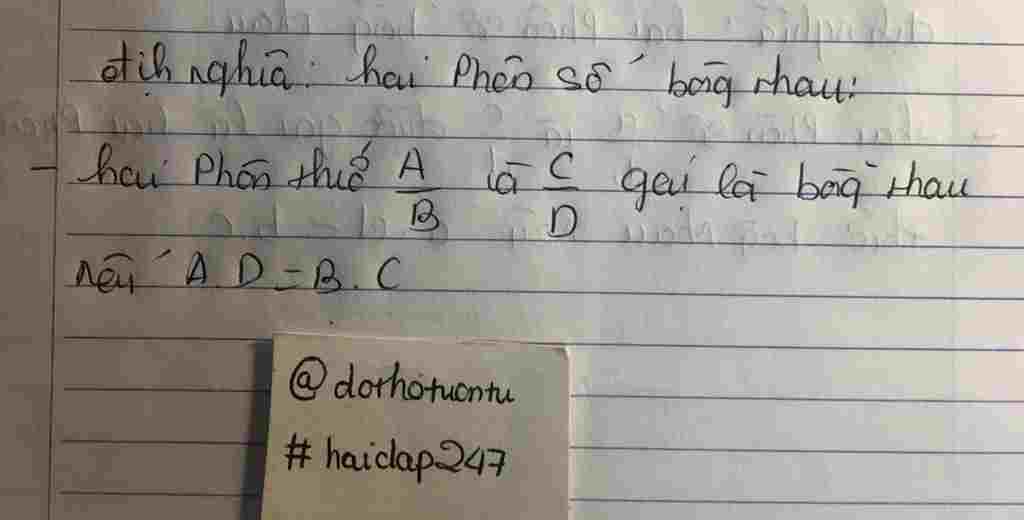 định nghĩa: hai phân số bằng nhau:
- hai phân thức A/B và C/D gọi là bằng nhau
nếu A.D = B.C
@dorhotuontu
#haidap247